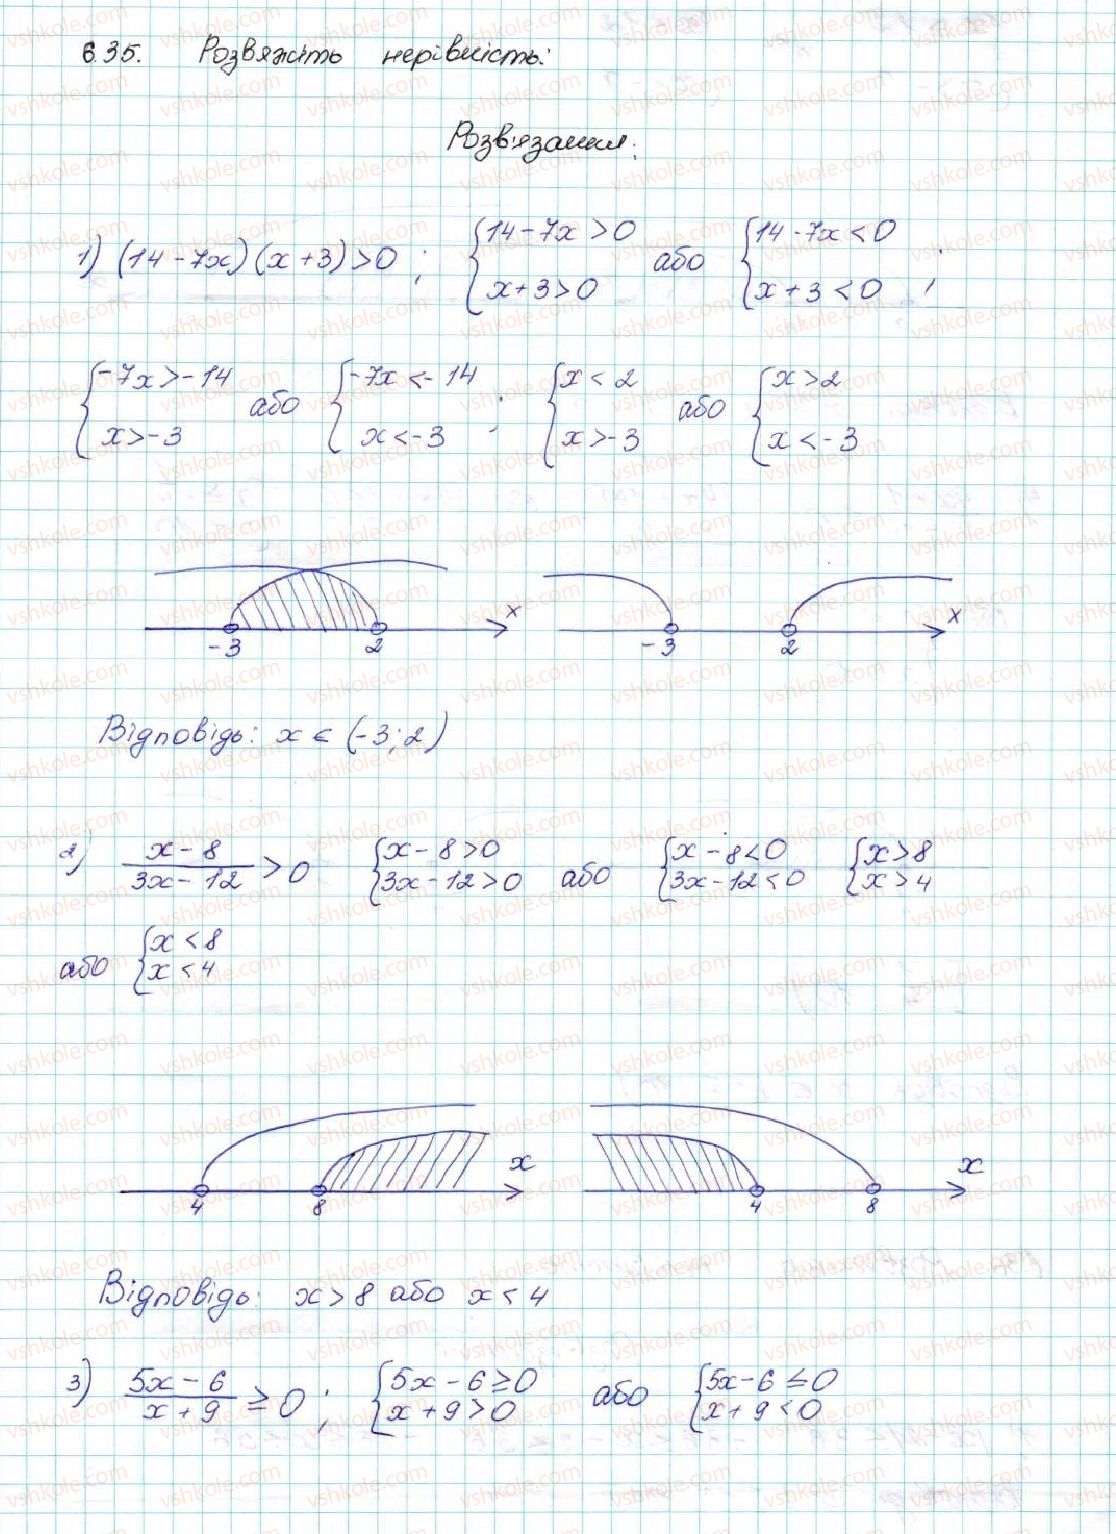 6.35. Розвяжіть нерівність:
Розв'язання:
1) (14-7x)(x+3)>0; {14-7x>0 x+3>0 або {14-7x<0 x+3<0;
{-7x>-14 x>-3 або {-7x<-14 x<-3; {x<2 x>-3 або {x>2 x<-3
-3 2 x -3 2 x
Відповідь: x ∈ (-3;2)
2) (x-8)/(3x-12) > 0 {x-8>0 3x-12>0 або {x-8<0 3x-12<0 {x>8 x>4
або {x<8 x<4
4 8 x 4 8 x
Відповідь: x>8 або x<4
3) (5x-6)/(x+9) ≥ 0; {5x-6≥0 x+9>0 або {5x-6≤0 x+9<0
vshkole.com